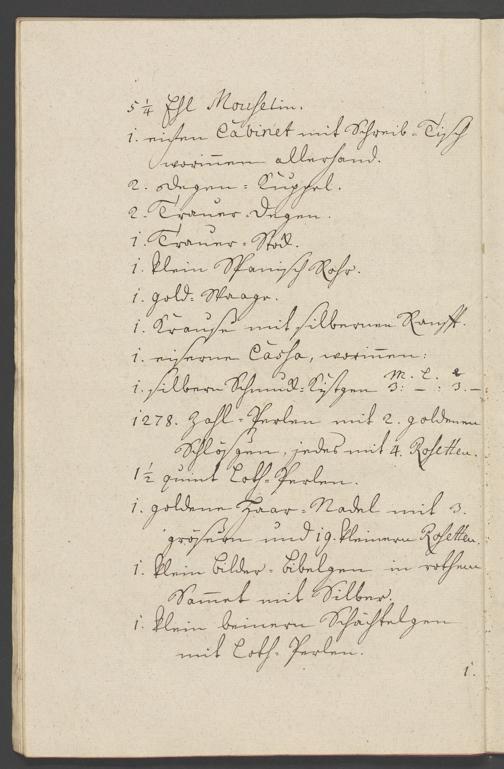 5 1/4 Ehl Mouselin.
1. eichen Cabinet mit Schreib-Tisch
worinnen allerhand.
2. Degen-Kuppel.
2. Trauer-Degen.
1. Trauer-Stock.
1. klein Spanisch Rohr.
1. Gold-Waage.
1. Krause mit silbernen Ranfft.
1. eiserne Cassa, worinnen:
1. silbern Schmuck-Kistgen M. L.
3: – : 3. –
1278. Zahl-Perlen mit 2. goldenen
Schlössgen, jedes mit 4. Rosetten.
1 1/2 quint Loth-Perlen.
1. goldene Haar-Nadel mit 3.
grösern und 19. kleinern Rosetten.
1. klein Bilder-Bibelgen in rothem
Sammet mit Silber.
1. klein beinern Schächtelgen
mit Loth-Perlen.
1.